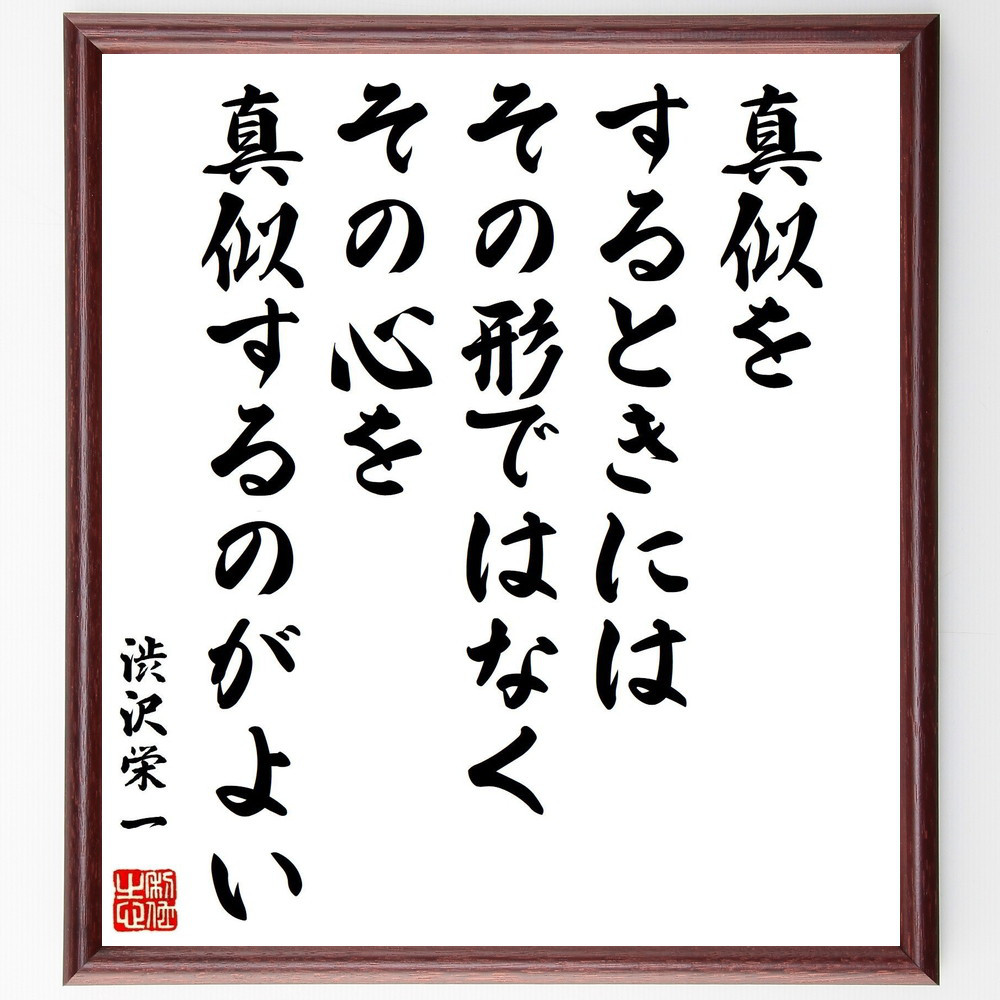 真似を
するときには
その形ではなく
その心を
真似するのがよい
渋沢栄一